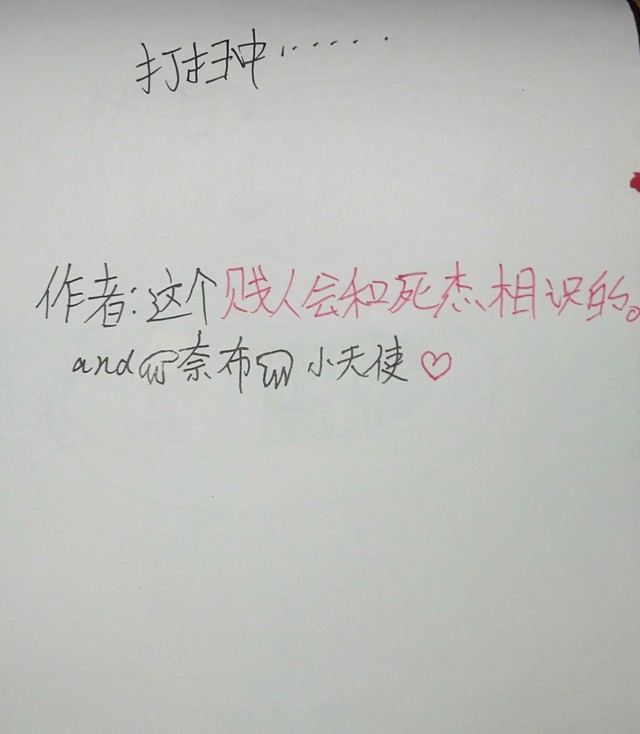 打扫中……
作者:这个贱人会和死杰相识的。
and奈布小天使♡